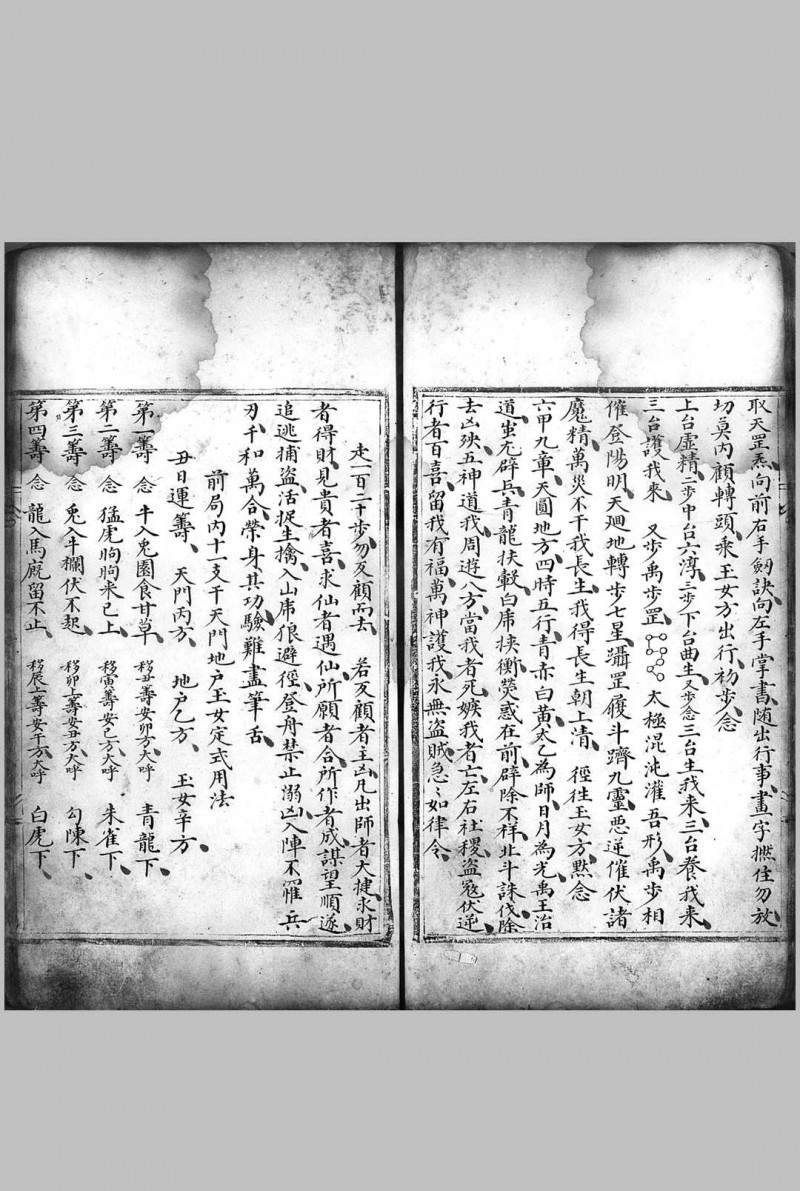 取天罡炁向前右手劒訣向左手掌書随出行事畫字撚住勿放
切莫內顧轉頭乘玉女方出行初步念
上台虛精二步中台六淳三步下台曲生又步念三台生我來三台養我來
三台護我來 又步禹步罡 太極混沌漼吾形禹步相
催登陽明天廻地轉步七星躡罡履斗躋九靈惡逆催伏諸
魔精萬災不干我長生我得長生朝上清 徑徃玉女方默念
六甲九章天圓地方四時五行青赤白黃太乙為師日月為光禹王治
道蚩尤辟兵青龍扶轂白虎挾衡熒惑在前辟除不祥北斗誅伐除
去凶殃五神道我周遊八方當我者死嫉我者亡左右社稷盜冦伏逆
行者百喜留我有福萬神護我永無盜賊急〻如律令
走一百二十步勿反顧而去 若反顧者主凶凡出師者大捷求財
者得財見貴者喜求仙者遇仙所願者合所作者成謀望順遂
追逃捕盜活捉生擒入山虎狼避徑登舟禁止溺凶入陣不罹兵
刃千和萬合榮身其功驗難盡筆舌
前局內十一支千天門地户玉女定式用法
丑日運籌 天門丙方 地户乙方 玉女辛方
第一籌 念 牛入兎園食甘草 移丑籌安卯方大呼 青龍下
第二籌 念 猛虎昫昫來已上 移寅籌安已方大呼 朱雀下
第三籌 念 兎入牛欄伏不起 移卯上籌安丑方大呼 勾陳下
第四籌 念 龍入馬廐留不止 移辰上籌安午方大呼 白虎下